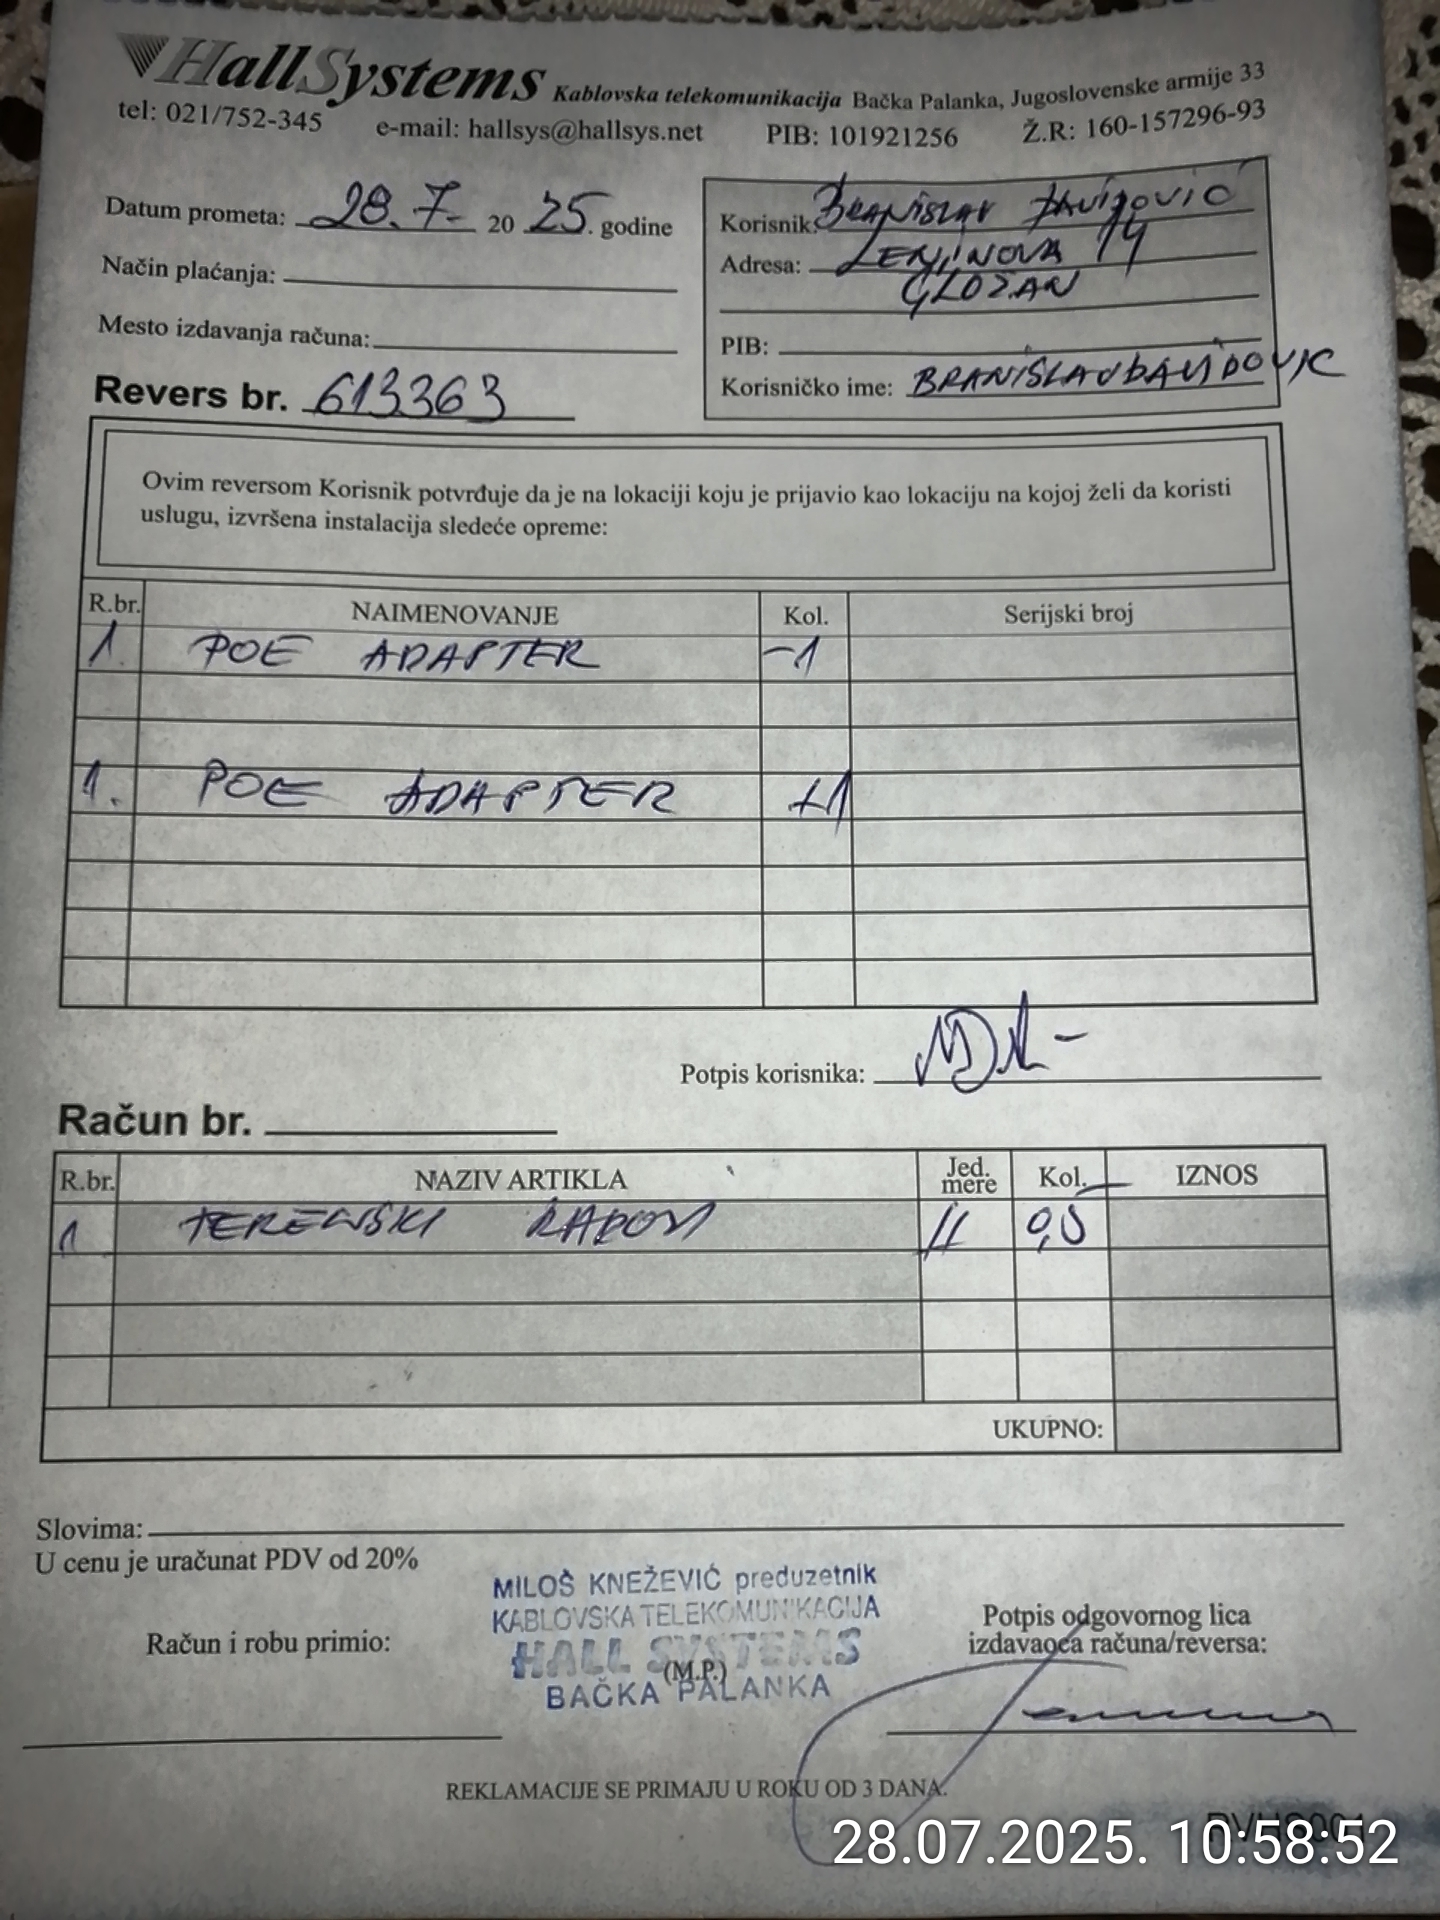 HallSystems Kablovska telekomunikacija Bačka Palanka, Jugoslovenske armije 33
tel: 021/752-345 e-mail: hallsys@hallsys.net PIB: 101921256 Ž.R: 160-157296-93
Datum prometa: 28.7- 2025. godine
Način plaćanja:
Mesto izdavanja računa:
Revers br. 613363
Korisnik: BRANISLAV DAVIDOVIĆ
Adresa: LENJINOVA 14
GLOŽAN
PIB:
Korisničko ime: BRANISLAVDAVIDOVIC
Ovim reversom Korisnik potvrđuje da je na lokaciji koju je prijavio kao lokaciju na kojoj želi da koristi
uslugu, izvršena instalacija sledeće opreme:
R.br. NAIMENOVANJE Kol. Serijski broj
1. POE ADAPTER -1
1. POE ADAPTER +1
Potpis korisnika:
Račun br.
R.br. NAZIV ARTIKLA Jed. mere Kol. IZNOS
1 TERENSKI RADOVI H 0,5
UKUPNO:
Slovima:
U cenu je uračunat PDV od 20%
MILOŠ KNEŽEVIĆ preduzetnik
KABLOVSKA TELEKOMUNIKACIJA
HALL SYSTEMS
(M.P.)
BAČKA PALANKA
Račun i robu primio:
Potpis odgovornog lica
izdavaoca računa/reversa:
REKLAMACIJE SE PRIMAJU U ROKU OD 3 DANA.
28.07.2025. 10:58:52